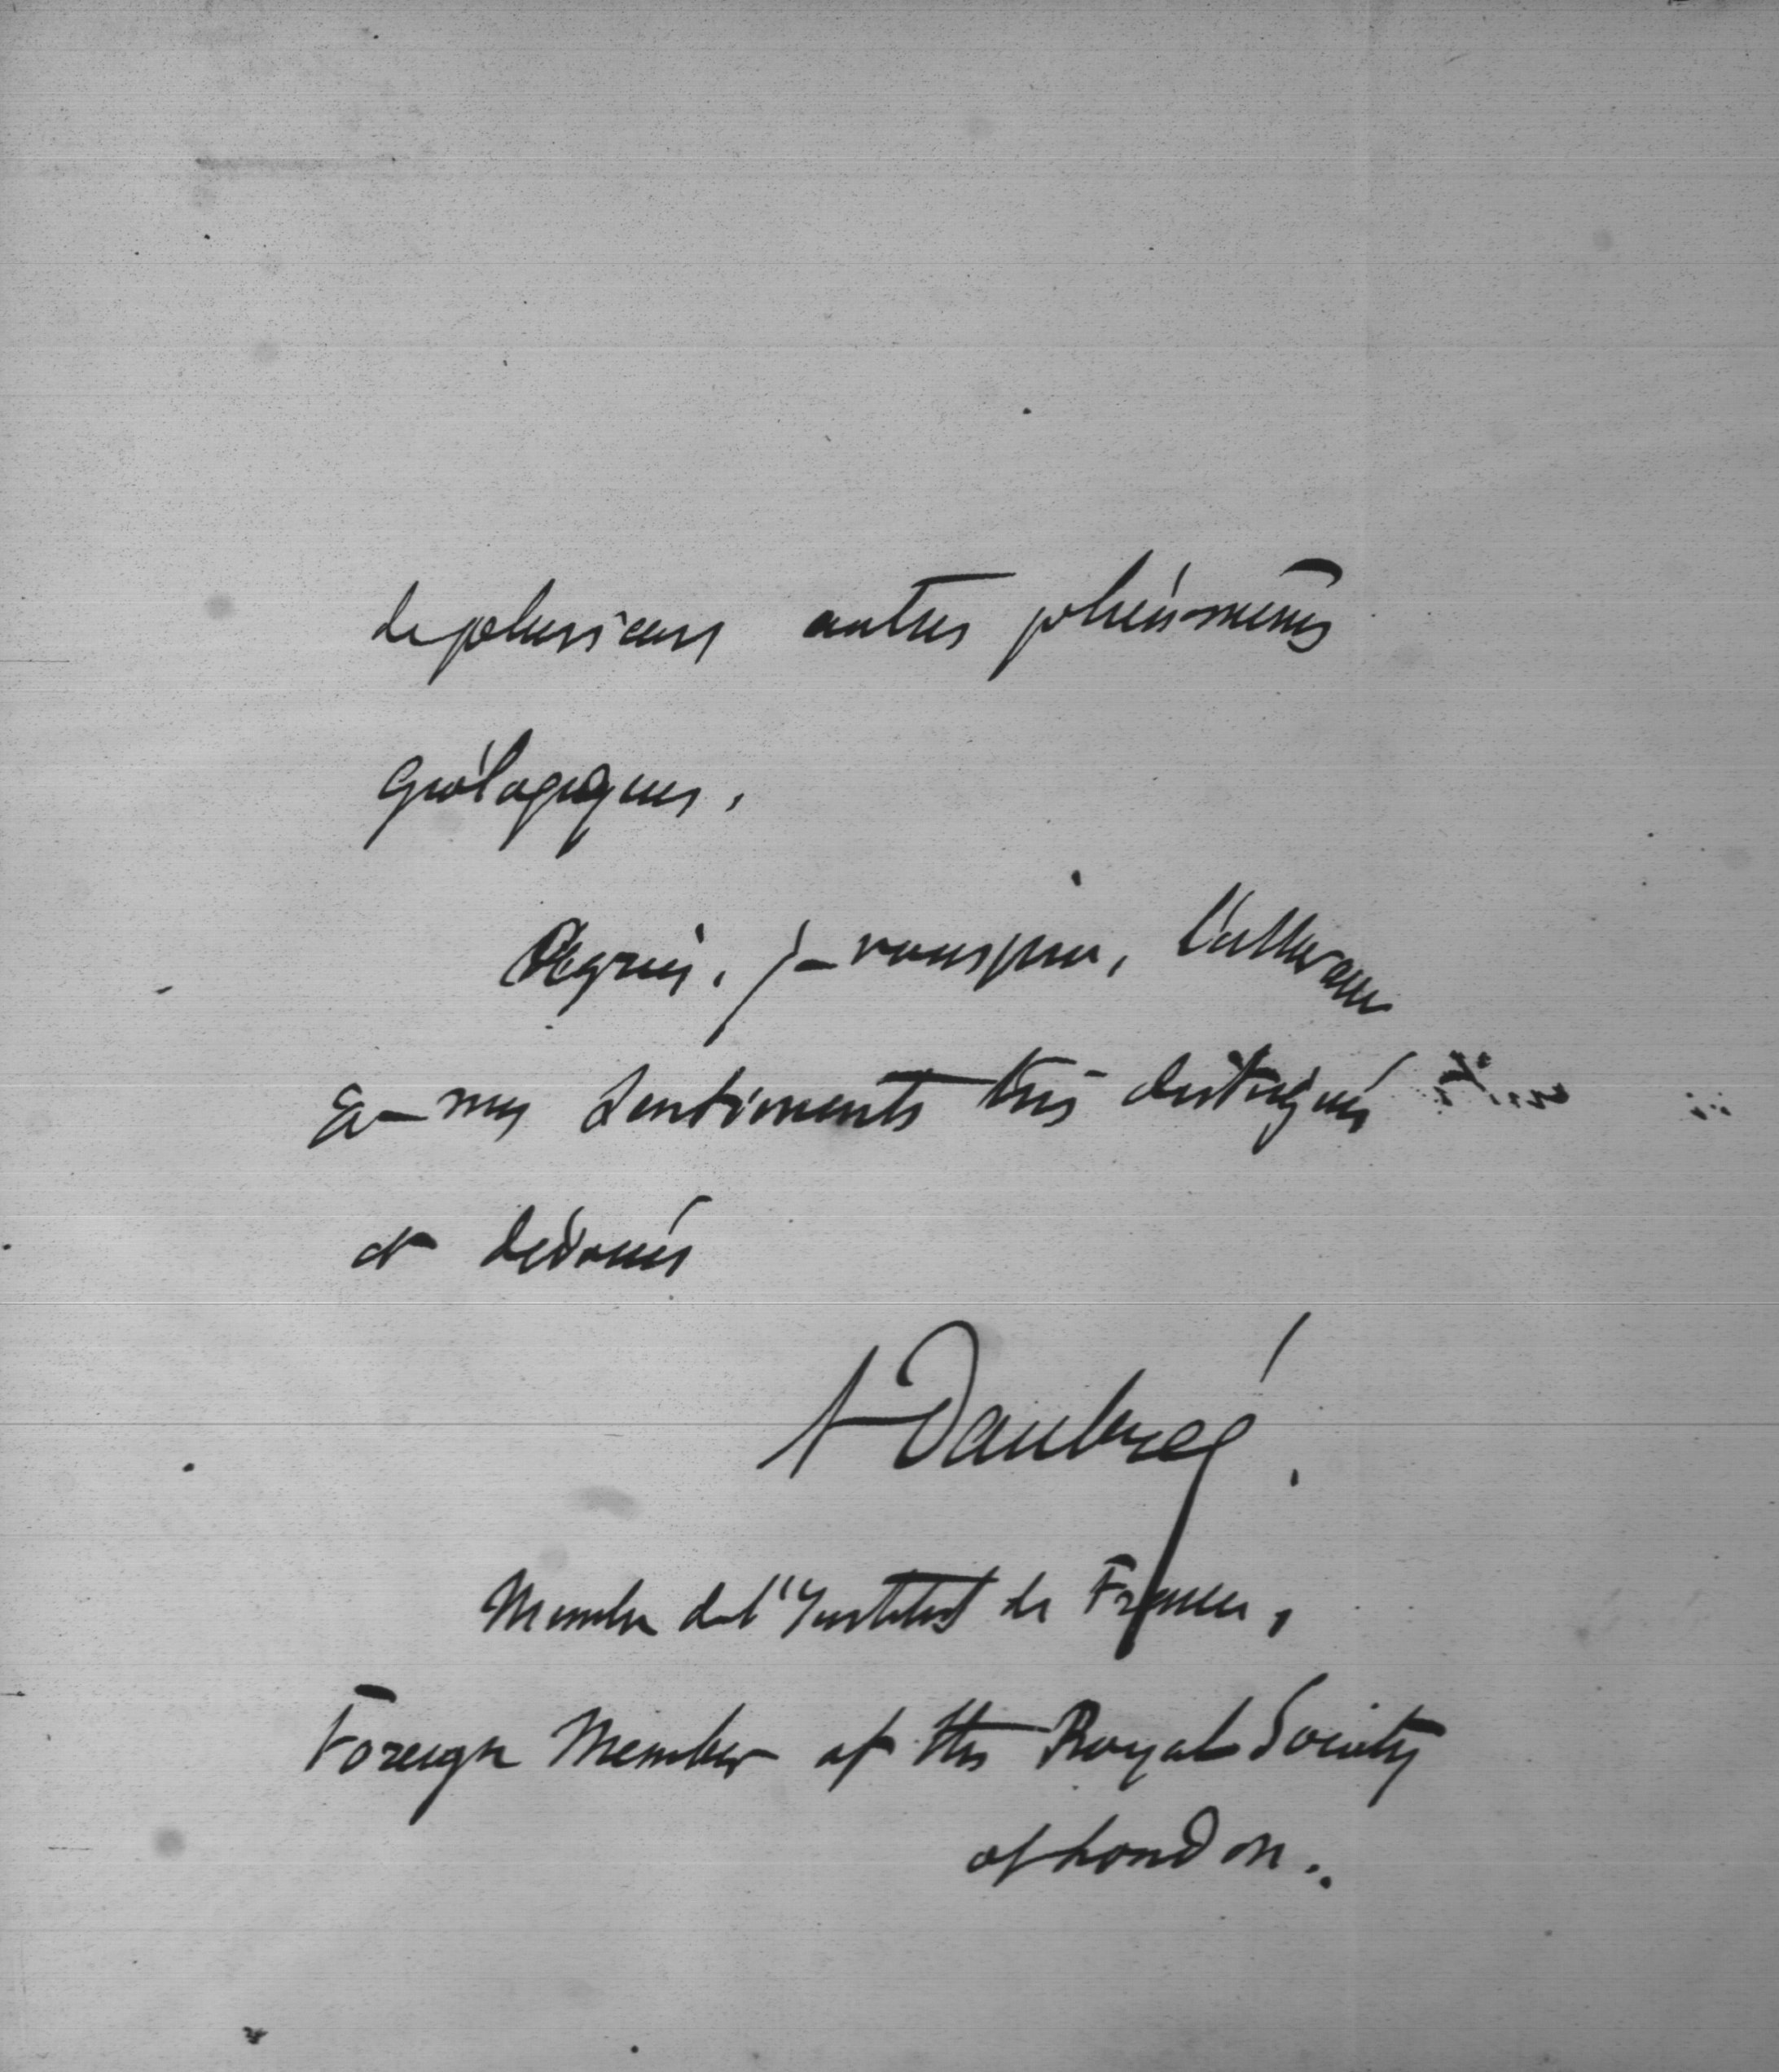 de plusieurs autres phénomènes
géologiques.
Agréez, je vous prie, l'assurance
de mes sentiments très distingués
et dévoués
A Daubrée
Membre de l'Institut de France,
Foreign Member of the Royal Society
of London.